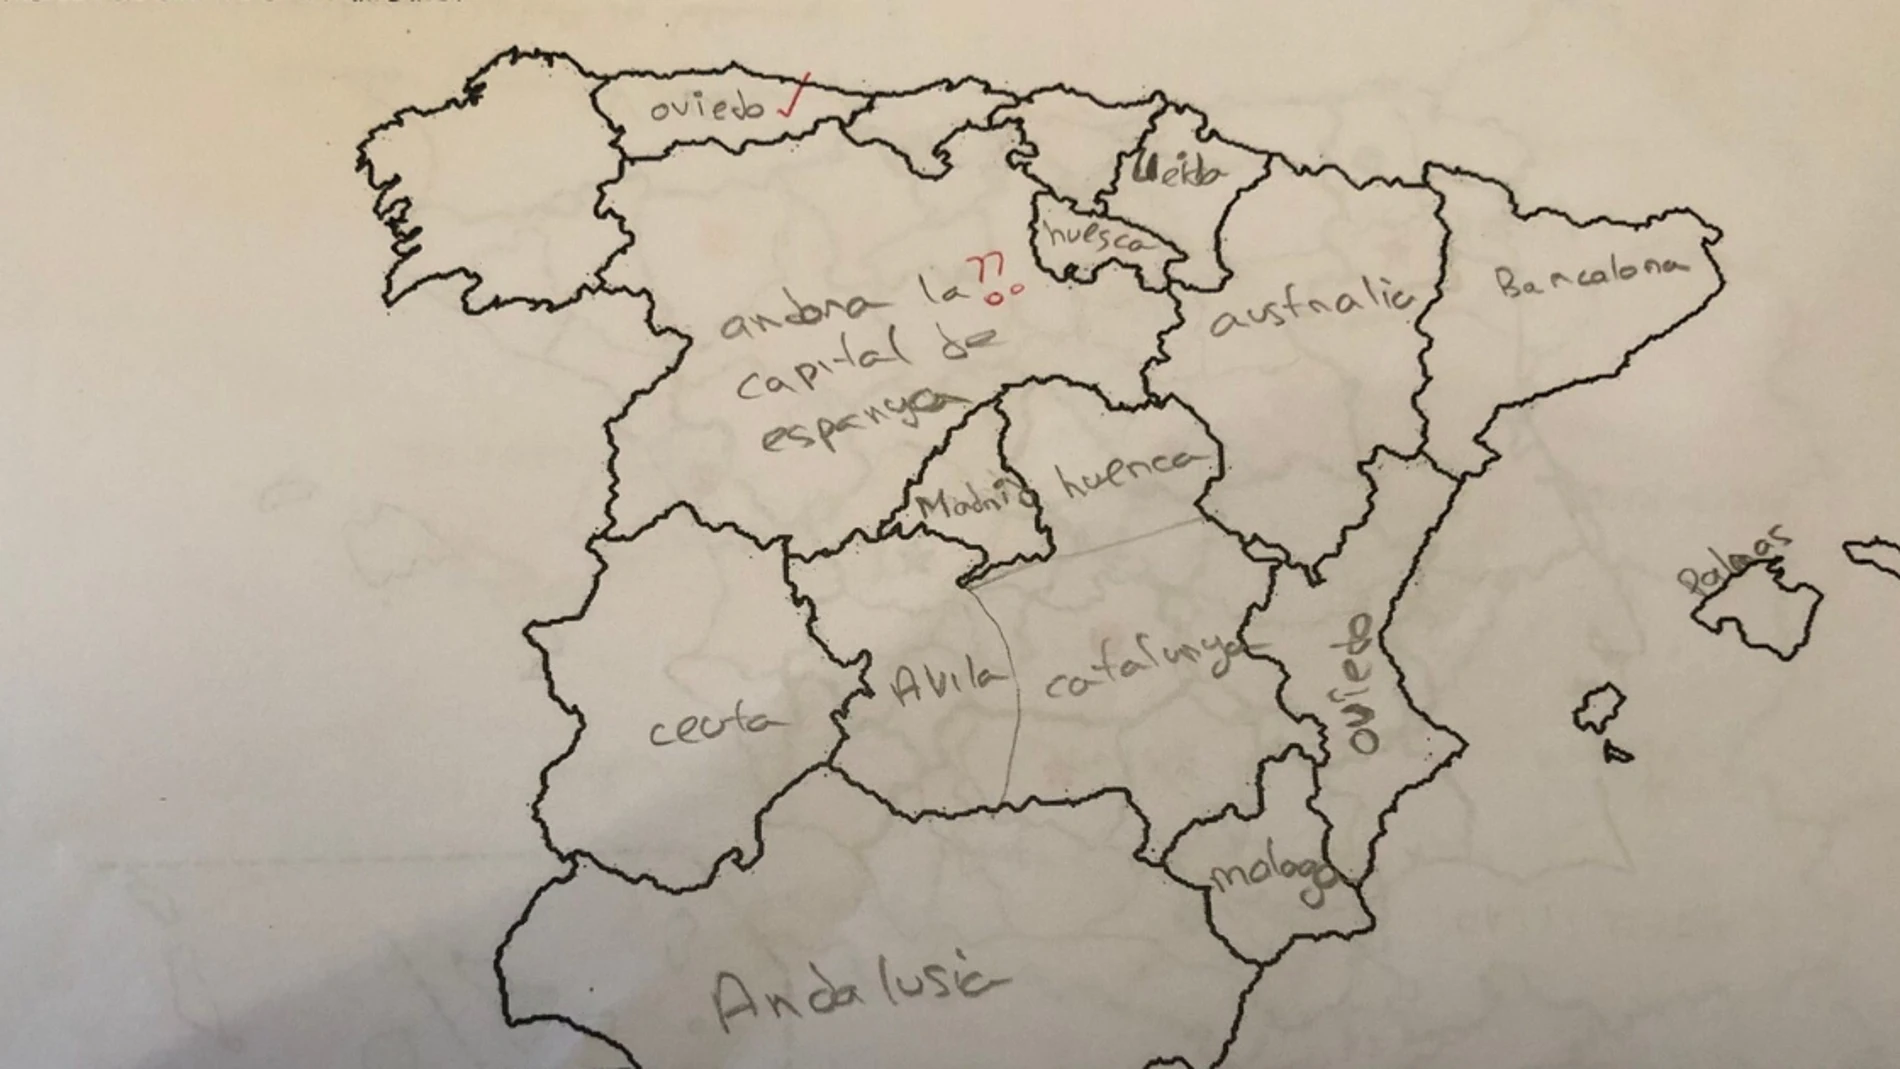 oviedo
lleida
huesca
??
andorra la
capital de
espanya
australia
Barcalona
Madrid
huenca
Palmas
Avila
catalunya
oviedo
ceuta
malaga
Andalusia